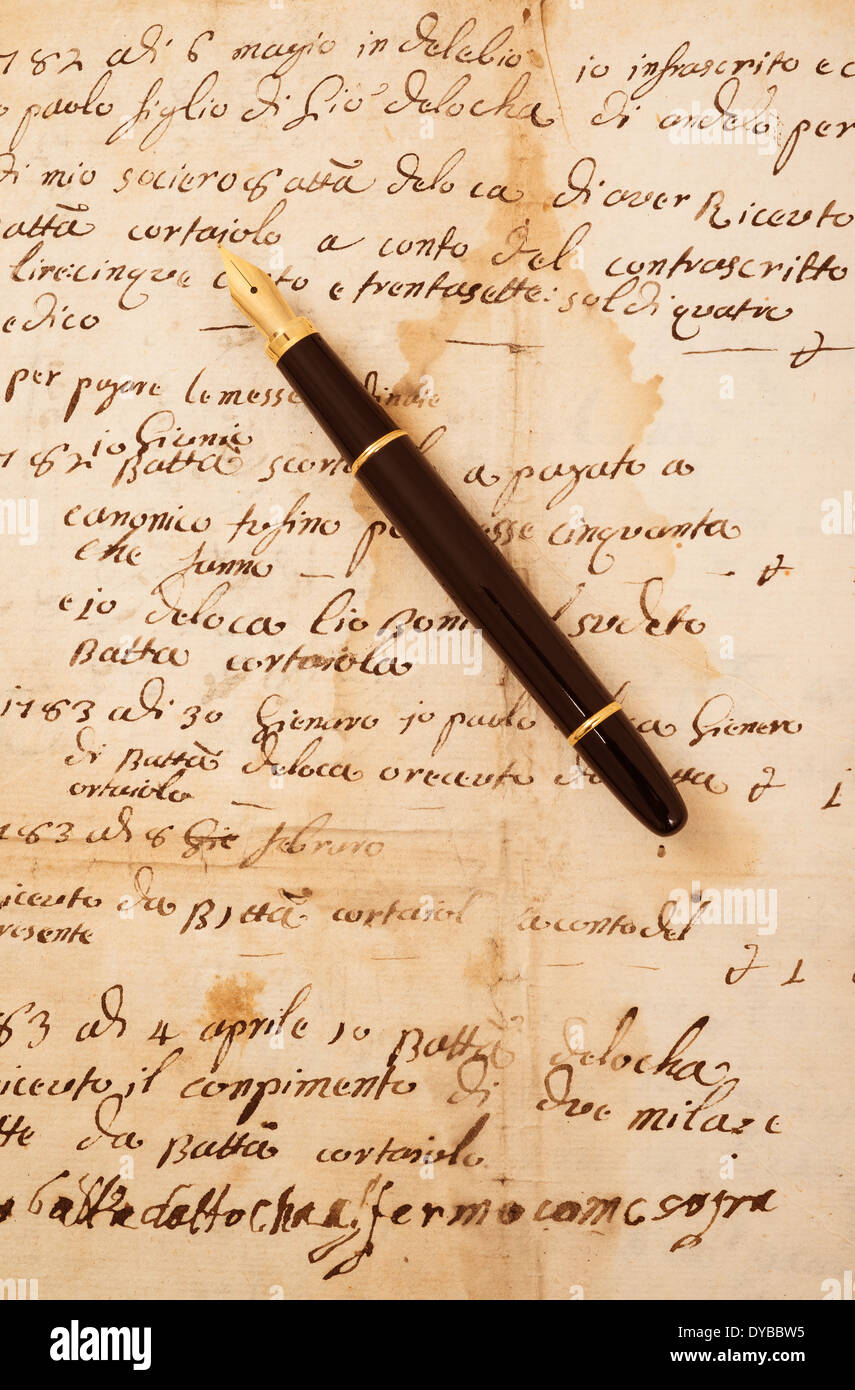 1782 adi 6 magio in delebio io infrascrito e c
paolo figlio di Gio delocha di andelo per
di mio sociero Battã deloca di aver Riceuto
attã cortaiolo a conto del contrascritto
lire: cinque e trentasette: soldi quatro
edico
per pagare le messe
io Gienio
1782 Battã a pagato a
canonico cinquanta
che sunno
e io deloca sudeto
Batta cortaiola
1783 adi 30 Gienaro io paolo Gienero
di Battã deloca o receuto
ortaiolo
183 adi 8 Gie febraro
iceuto da Battã cortaiol a conto del
resente
83 adi 4 aprile io Battã delocha
iceuto il conpimento di due mila e
tte da Battã cortaiolo
affermo come sopra
alamy
a
alamy
Image ID: DYBBW5
www.alamy.com